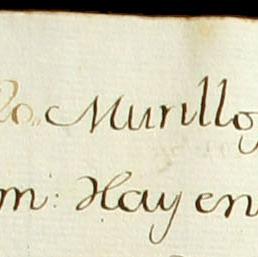 lo Murillo
m: Hay en